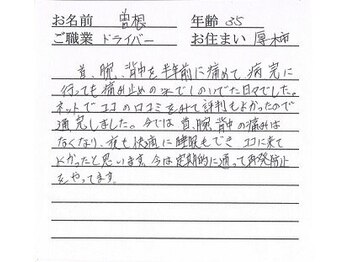 お名前 曽根 年齢 35
ご職業 ドライバー お住まい 厚木市
首、腕、背中を半年前に痛めて、病院に
行っても痛み止めの薬でしのいでいた日々でした。
ネットでココの口コミをみて評判もよかったので
通院しました。今では首、腕、背中の痛みは
なくなり、夜も快適に睡眠もでき ココに来て
よかったと思います。今は定期的に通って再発防止
をやってます。